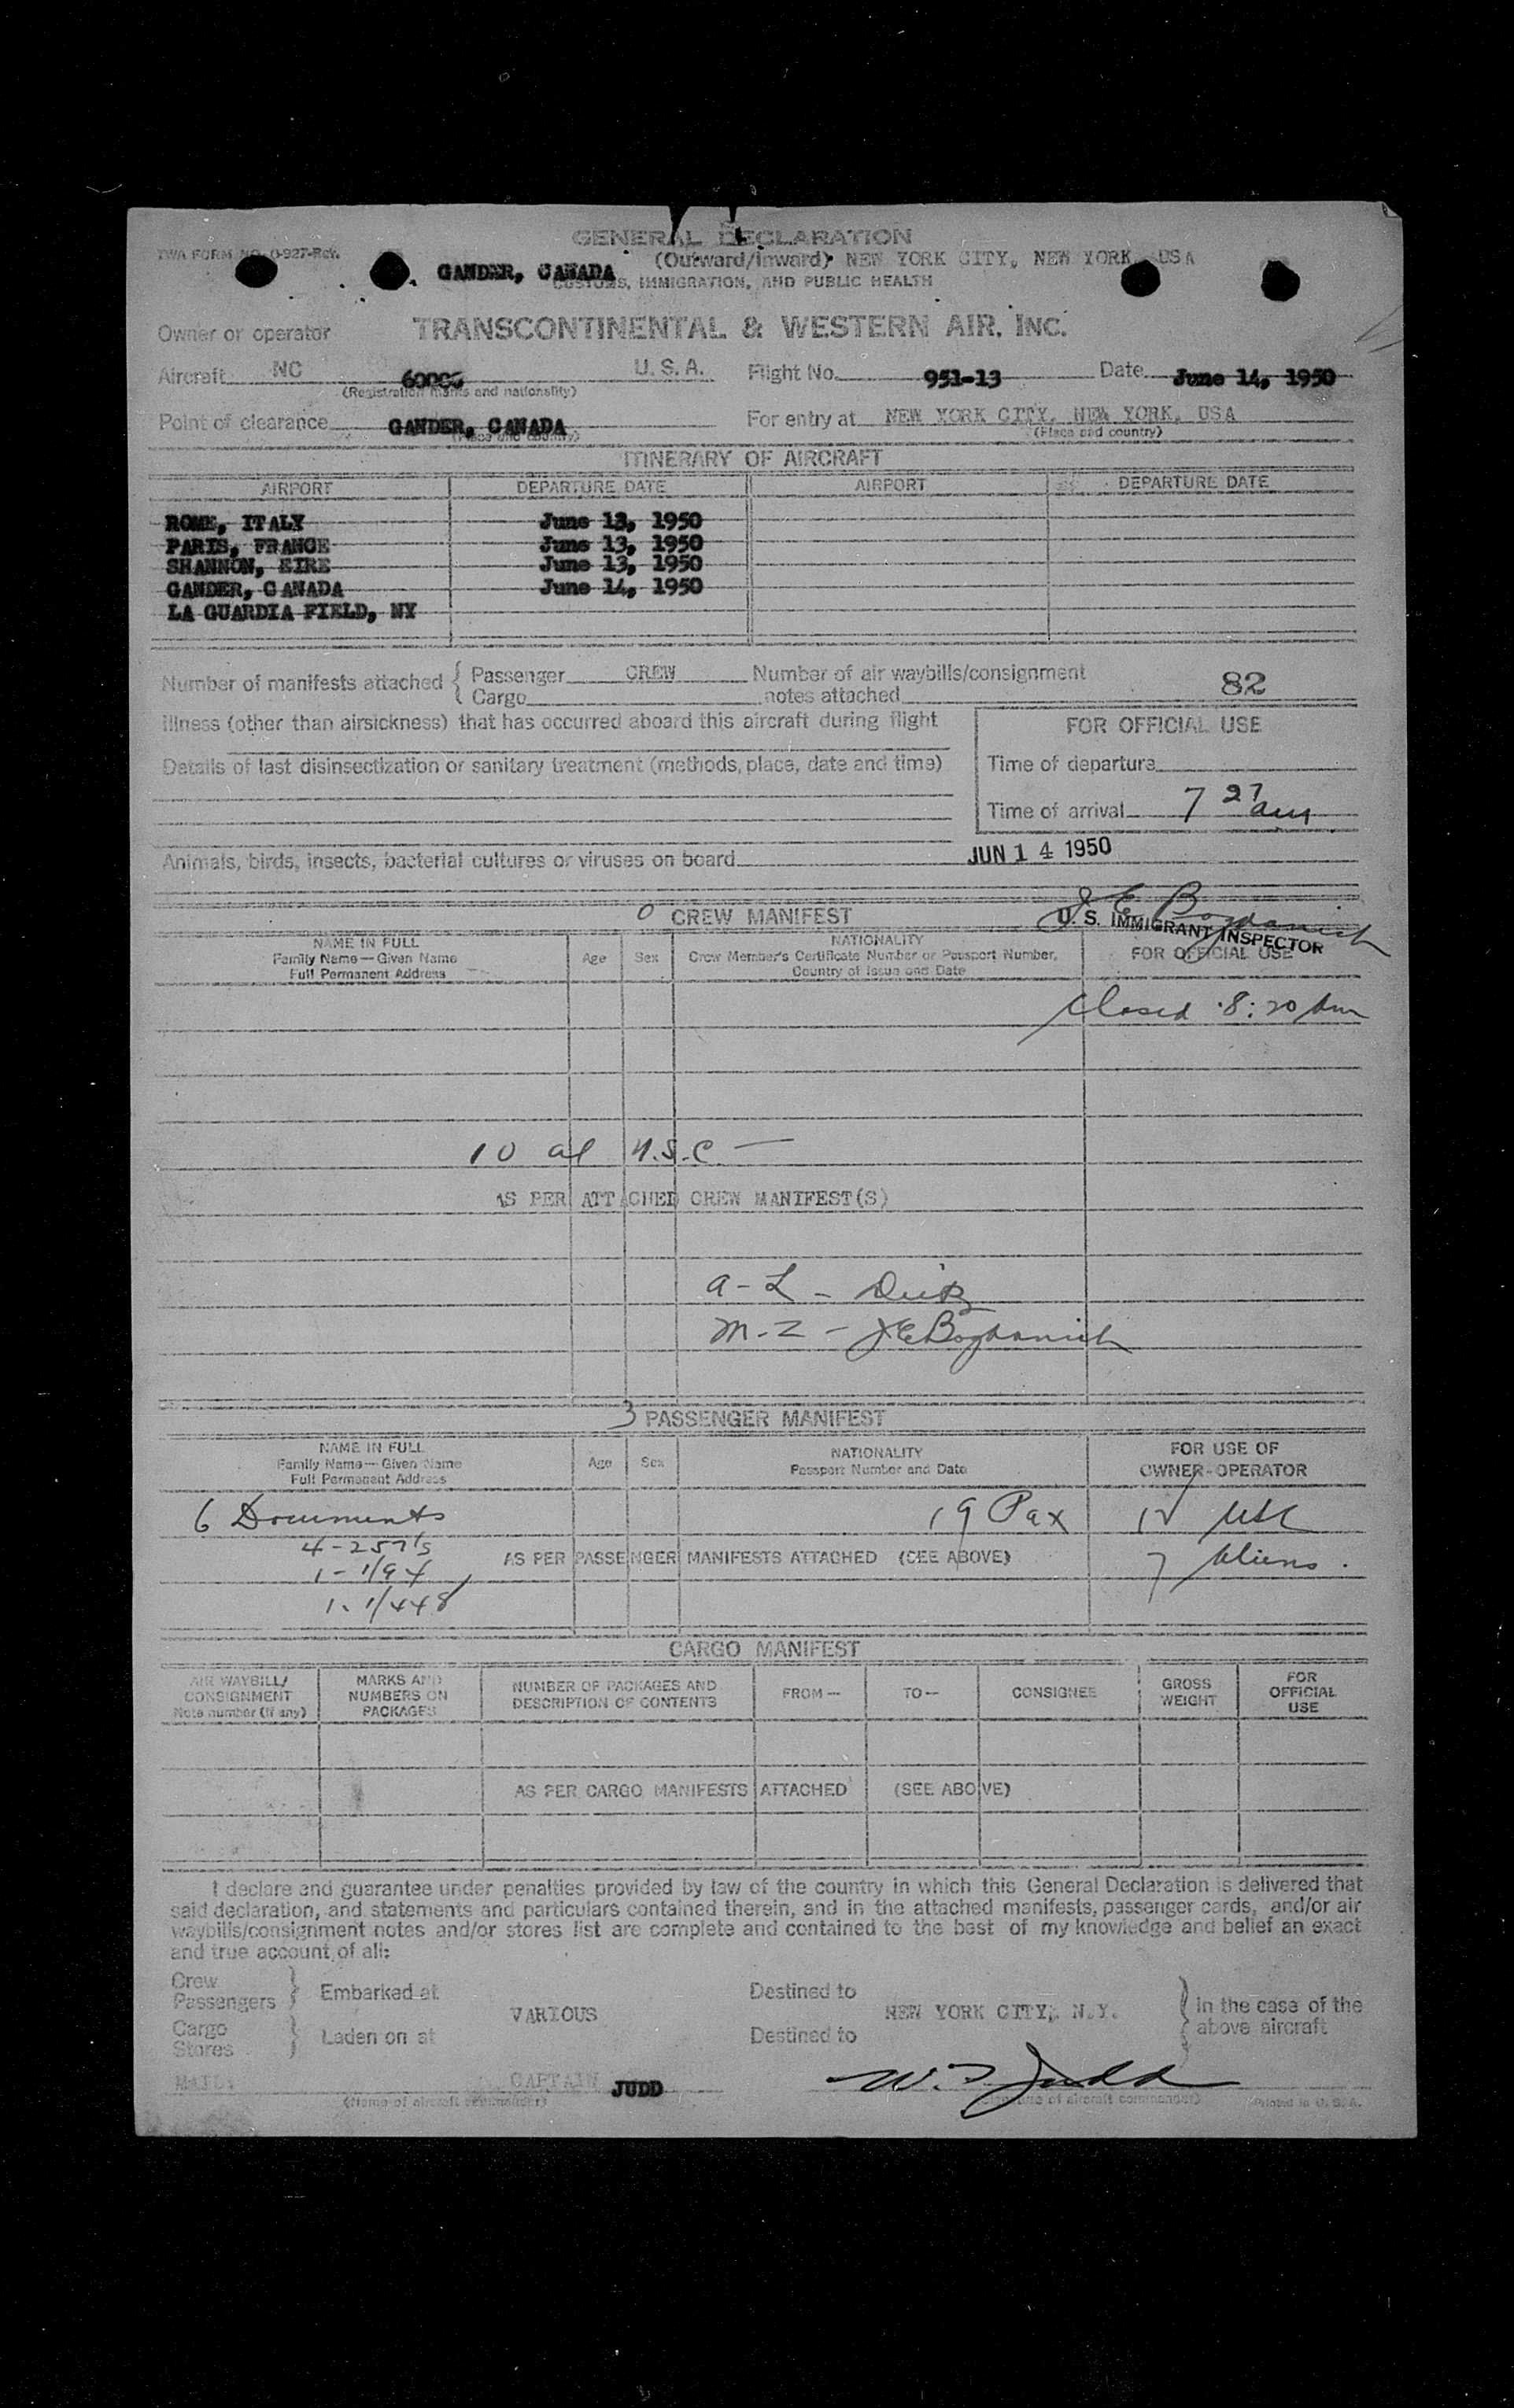 GENERAL DECLARATION
TWA FORM NO. 0-927-Rev.
(Outward/Inward) NEW YORK CITY, NEW YORK, USA
GANDER, CANADA
CUSTOMS, IMMIGRATION, AND PUBLIC HEALTH
Owner or operator TRANSCONTINENTAL & WESTERN AIR, INC.
Aircraft NC U. S. A. Flight No. 951-13 Date June 14, 1950
(Registration marks and nationality)
Point of clearance GANDER, CANADA For entry at NEW YORK CITY, NEW YORK, USA
(Place and country) (Place and country)
ITINERARY OF AIRCRAFT
AIRPORT DEPARTURE DATE AIRPORT DEPARTURE DATE
ROME, ITALY June 13, 1950
PARIS, FRANCE June 13, 1950
SHANNON, EIRE June 13, 1950
GANDER, CANADA June 14, 1950
LA GUARDIA FIELD, NY
Number of manifests attached { Passenger CREW Number of air waybills/consignment
Cargo notes attached 82
Illness (other than airsickness) that has occurred aboard this aircraft during flight
FOR OFFICIAL USE
Details of last disinsectization or sanitary treatment (methods, place, date and time)
Time of departure
Time of arrival 7 27 am
Animals, birds, insects, bacterial cultures or viruses on board
JUN 14 1950
J E Bogdanich
0 CREW MANIFEST
U. S. IMMIGRANT INSPECTOR
NAME IN FULL Age Sex NATIONALITY FOR OFFICIAL USE
Family Name—Given Name Crew Member's Certificate Number or Passport Number,
Full Permanent Address Country of Issue and Date
Closed 8:20 Am
10 al U.S.C —
AS PER ATTACHED CREW MANIFEST(S)
a - L -
M - Z - J E Bogdanich
3 PASSENGER MANIFEST
NAME IN FULL Age Sex NATIONALITY FOR USE OF
Family Name—Given Name Passport Number and Date OWNER-OPERATOR
Full Permanent Address
6 Documents 19 Pax 12 USC
4-257's
AS PER PASSENGER MANIFESTS ATTACHED (SEE ABOVE) 7 Aliens.
1 - 1/94
1 - 1/448
CARGO MANIFEST
AIR WAYBILL/ CONSIGNMENT Note number (if any) MARKS AND NUMBERS ON PACKAGES NUMBER OF PACKAGES AND DESCRIPTION OF CONTENTS FROM— TO— CONSIGNEE GROSS WEIGHT FOR OFFICIAL USE
AS PER CARGO MANIFESTS ATTACHED (SEE ABOVE)
I declare and guarantee under penalties provided by law of the country in which this General Declaration is delivered that
said declaration, and statements and particulars contained therein, and in the attached manifests, passenger cards, and/or air
waybills/consignment notes and/or stores list are complete and contained to the best of my knowledge and belief an exact
and true account of all:
Crew
Passengers } Embarked at Destined to
VARIOUS NEW YORK CITY, N.Y. } In the case of the
above aircraft
Cargo
Stores } Laden on at Destined to
MAIL: CAPTAIN JUDD W. J Judd
(Name of aircraft commander) (Signature of aircraft commander) Printed in U. S. A.